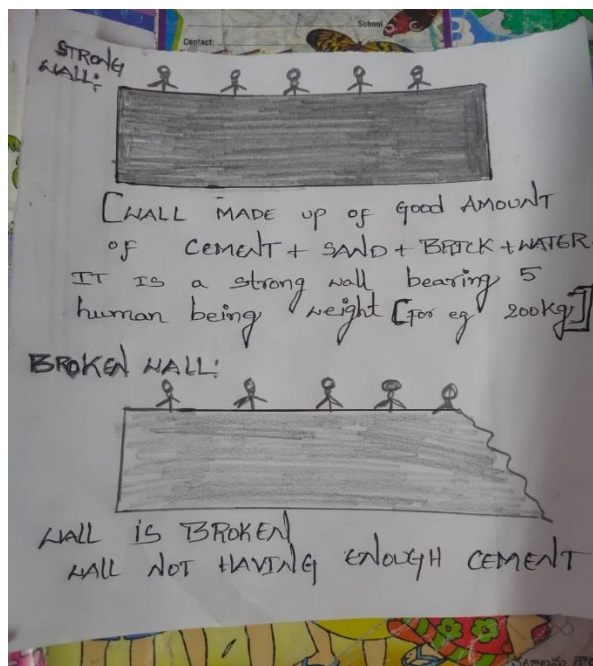 School
Contact:
STRONG
WALL:
[WALL MADE UP OF GOOD AMOUNT
OF CEMENT + SAND + BRICK + WATER
IT IS a strong wall bearing 5
human being weight [For eg 200kg]]
BROKEN WALL:
WALL IS BROKEN
WALL NOT HAVING ENOUGH CEMENT